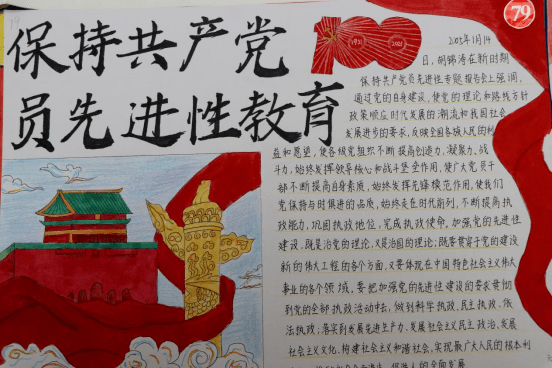 保持共产党
员先进性教育
100
1921
2021
79
2005年1月14
日，胡锦涛在新时期
保持共产党员先进性专题报告会上强调，
通过党的自身建设，使党的理论和路线方针
政策顺应时代发展的潮流和我国社会
发展进步的要求，反映全国各族人民的利
益和愿望，使各级党组织不断提高创造力、凝聚力、战
斗力，始终发挥领导核心和战斗堡垒作用，使广大党员干
部不断提高自身素质，始终发挥先锋模范作用，使我们
党保持与时俱进的品质，始终走在时代前列，不断提高执
政能力，巩固执政地位，完成执政使命。加强党的先进性
建设，既是治党的理论，又是治国的理论；既要贯穿于党的建设
新的伟大工程的各个方面，又要体现在中国特色社会主义伟大
事业的各个领域，要把加强党的先进性建设的要求贯彻
到党的全部执政活动中去，做到科学执政、民主执政、依
法执政；落实到发展先进生产力、发展社会主义民主政治、发展
社会主义文化、构建社会主义和谐社会，实现最广大人民的根本利